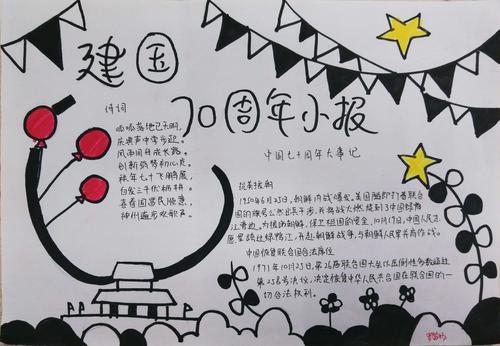 建国
70周年小报
诗词
呱呱落地已天明,
庆典声中学步迎。
风雨同舟成长路,
创新筑梦初心凭。
秩年七十飞鹏展,
白发三千
春春国富民顺意,
神州遍步欢歌
中国七十周年大事记
抗美援朝
1950年6月25日,朝鲜内战爆发。美国随即打着联合
国的旗号公然出兵干涉,并将战火燃烧到了中国鸭绿
江旁边。为援助朝鲜、保卫祖国的安全,10月19日,中国人民志
愿军跨过绿鸭江,开赴朝鲜战争,与朝鲜人民军并肩作战。
中国恢复联合国合法席位
1971年10月25日,第26届联合国大会以压倒性多数通过
第2758号决议,决定恢复中华人民共和国在联合国的一
切合法权利。